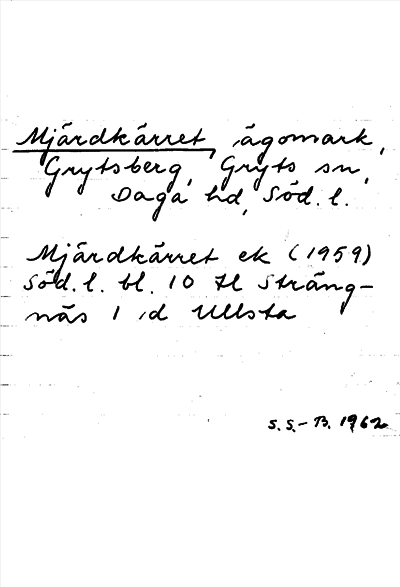 Mjärdkärret, ägomark,
Grytsberg, Gryts sn,
Daga hd, Söd. l.
Mjärdkärret ek (1959)
Söd. l. bl. 10 H Sträng-
näs 1 d Ullsta
S. S.-B. 1962